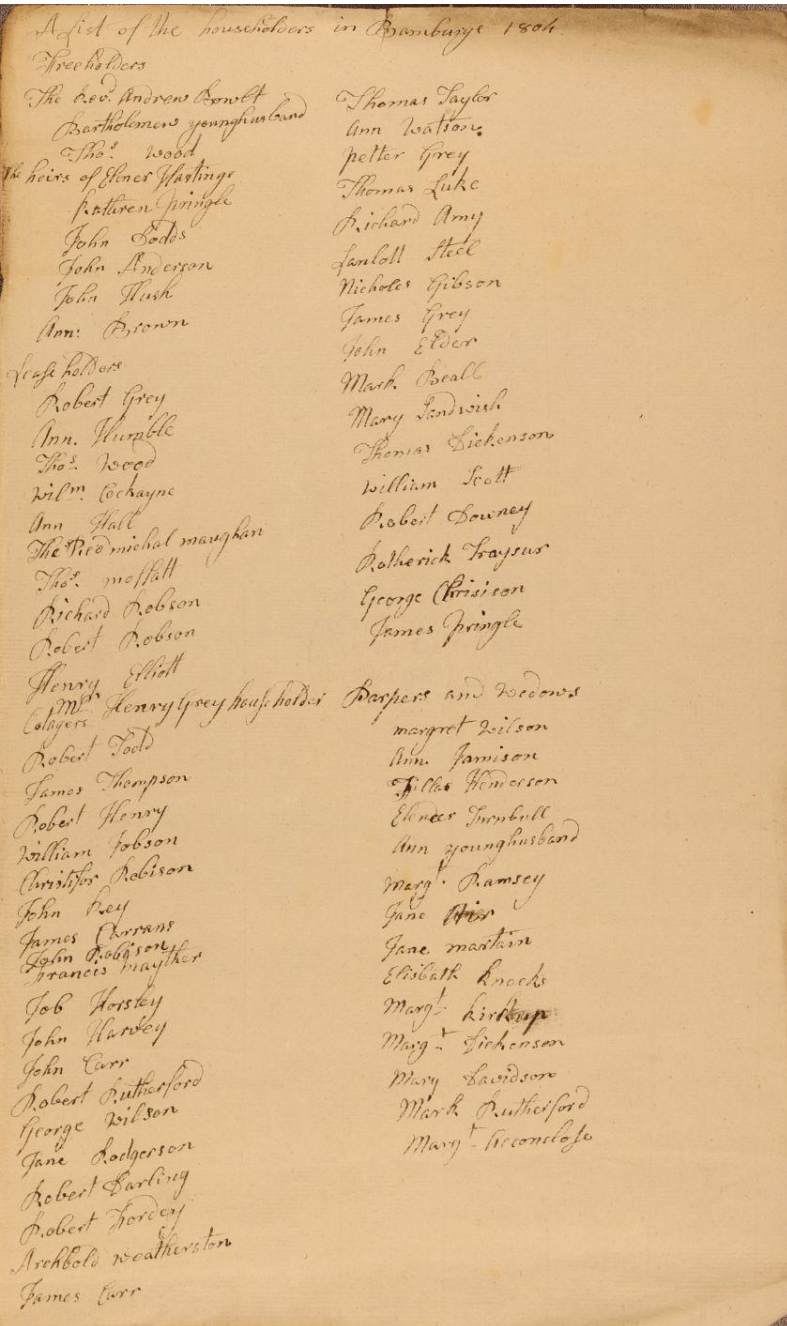 A List of the householders in Bamburge 1804
Freeholders
The Revd. Andrew Bowlt
Bartholemew younghusband
Thos. Wood
The heirs of Elener Hastings
Kathren Pringle
John Dodds
John Anderson
John Hush
Ann: Brown
Lease holders
Robert Grey
Ann. Humble
Thos. Wood
Wilm. Cockayne
Ann Hall
The Red michal maughan
Thos. moffatt
Richard Robson
Robert Robson
Henry Elliott
Mr. Henry Grey householder
Cotagers
Robert Todd
James Thompson
Robert Henry
William Jobson
Christifor Robison
John Key
James Currans
John Robison
Francis mayther
Job Horsley
John Harvey
John Carr
Robert Rutherford
George Wilson
Jane Rodgerson
Robert Darling
Robert Fordey
Archbold weatherston
James Carr
Thomas Taylor
Ann Watson.
petter Grey
Thomas Luke
Richard Amy
Lanlott Steel
Nicholes Gibson
James Grey
John Elder
Mark Beall
Mary Sandwish
Thomas Dickenson
William Scott
Robert Downey
Rotherick Fraysur
George Chrisison
James Pringle
Parpers and Wedows
margret Wilson
Ann. Jamison
Fillas Henderson
Elender Turnbull
Ann younghusband
Margt. Ramsey
Jane
Jane martain
Elisbath Knocks
Margt. Kirkup
Margt. Dickenson
Mary Davidson
Mark Rutherford
Margt.